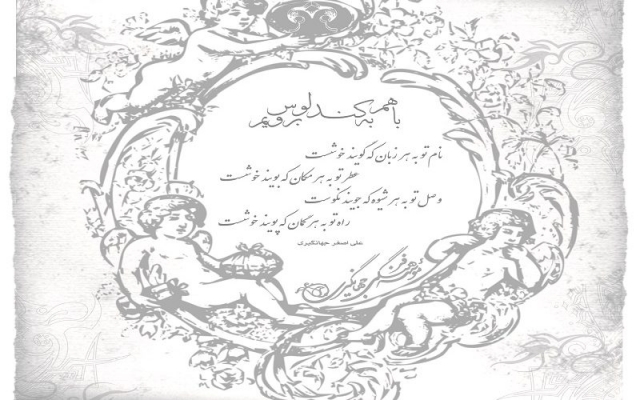 با هم به کندلوس برویم
نام تو به هر زبان که گویند خوشست
عطر تو به هر مکان که بویند خوشست
وصل تو به هر شیوه که جویند نکوست
راه تو به هر گمان که پویند خوشست
علی اصغر جهانگیری
موسسه فرهنگی جهانگیری